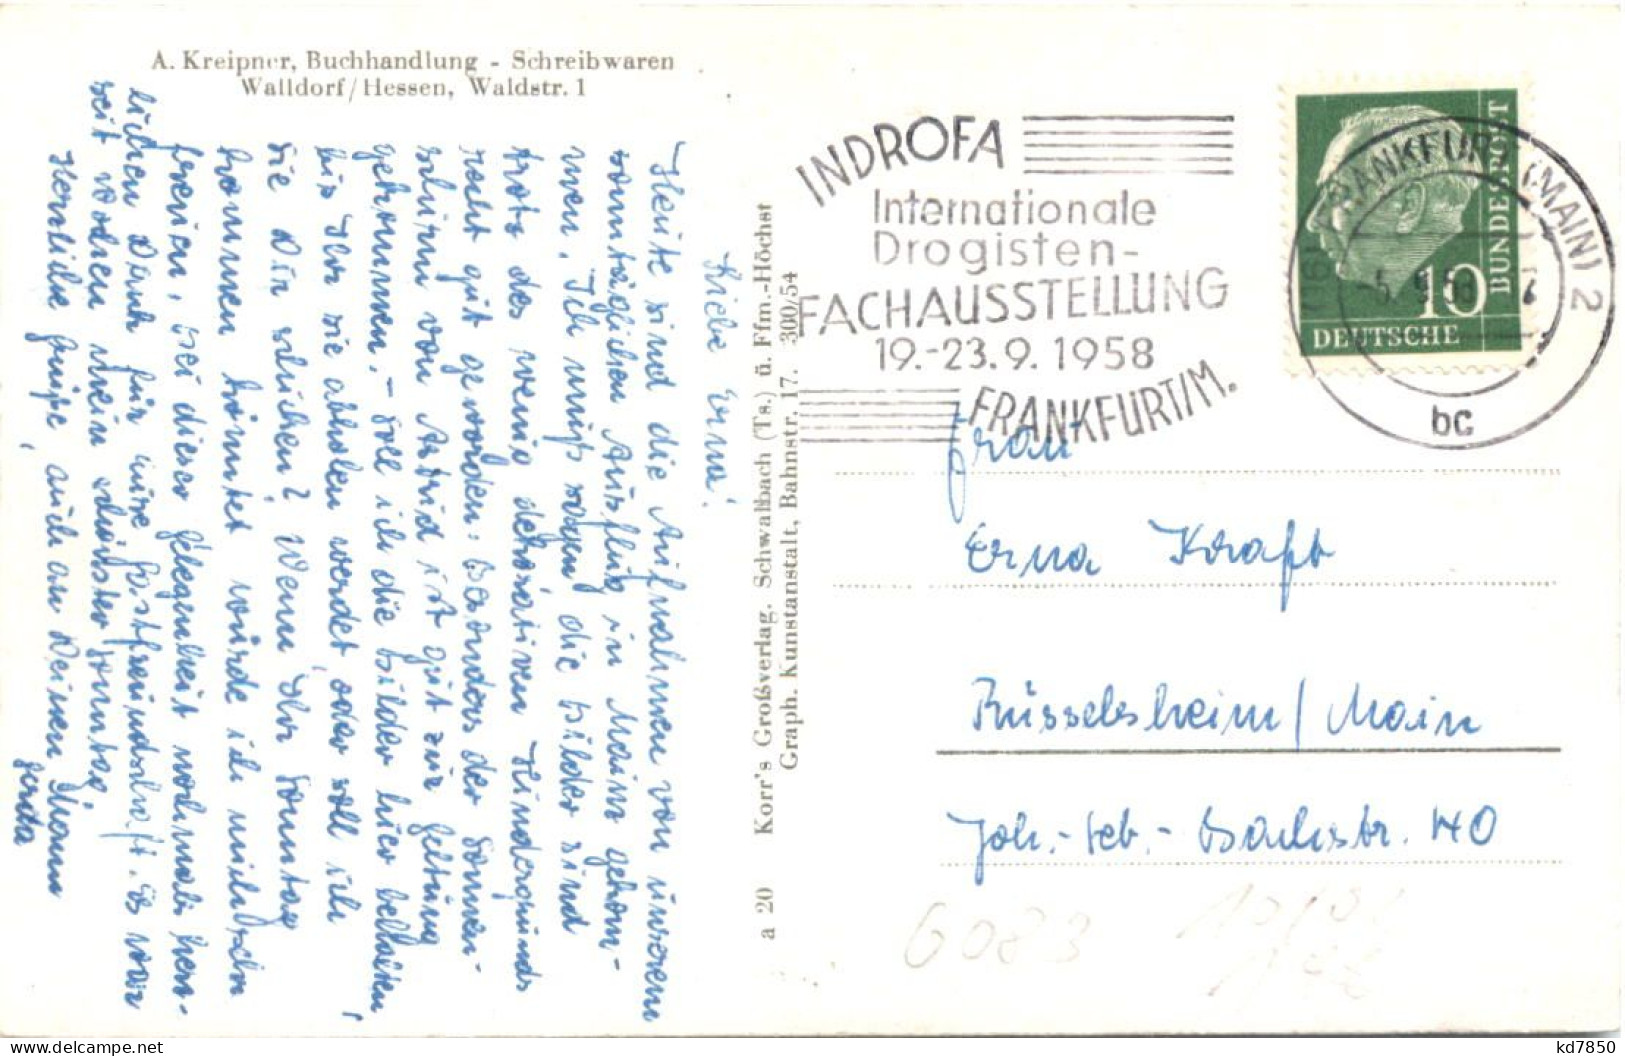 A. Kreipner, Buchhandlung - Schreibwaren
Walldorf/Hessen, Waldstr. 1
Liebe Erna!
Heute sind die Aufnahmen von unserem
sonntäglichen Ausflug in Mainz gekom-
men. Ich muß sagen, die Bilder sind
trotz des wenig dekorativen Hintergrunds
recht gut geworden. Besonders der Sonnen-
schirm von Astrid ist gut zur Geltung
gekommen. - Soll ich die Bilder hier behalten,
bis Ihr sie abholen werdet, oder soll ich
sie Dir schicken? Wenn Ihr Sonntag
kommen könntet, würde ich mich sehr
freuen, bei dieser Gelegenheit nochmals herz-
lichen Dank für eure Gastfreundschaft. Es war
seit Wochen mein schönster Sonntag.
Herzliche Grüße, auch an Deinen Mann
Gerda
a 20 Korr's Großverlag. Schwalbach (Ts.) ü. Ffm.-Höchst
Graph. Kunstanstalt, Bahnstr. 17. 300/54
INDROFA
Internationale
Drogisten-
FACHAUSSTELLUNG
19.-23.9.1958
FRANKFURT/M.
(16) FRANKFURT (MAIN) 2
-5.9.58
bc
DEUTSCHE
BUNDESPOST
10
Frau
Erna Kraft
Rüsselsheim/Main
Joh.-Seb.-Bachstr. 140
6083
kd7850